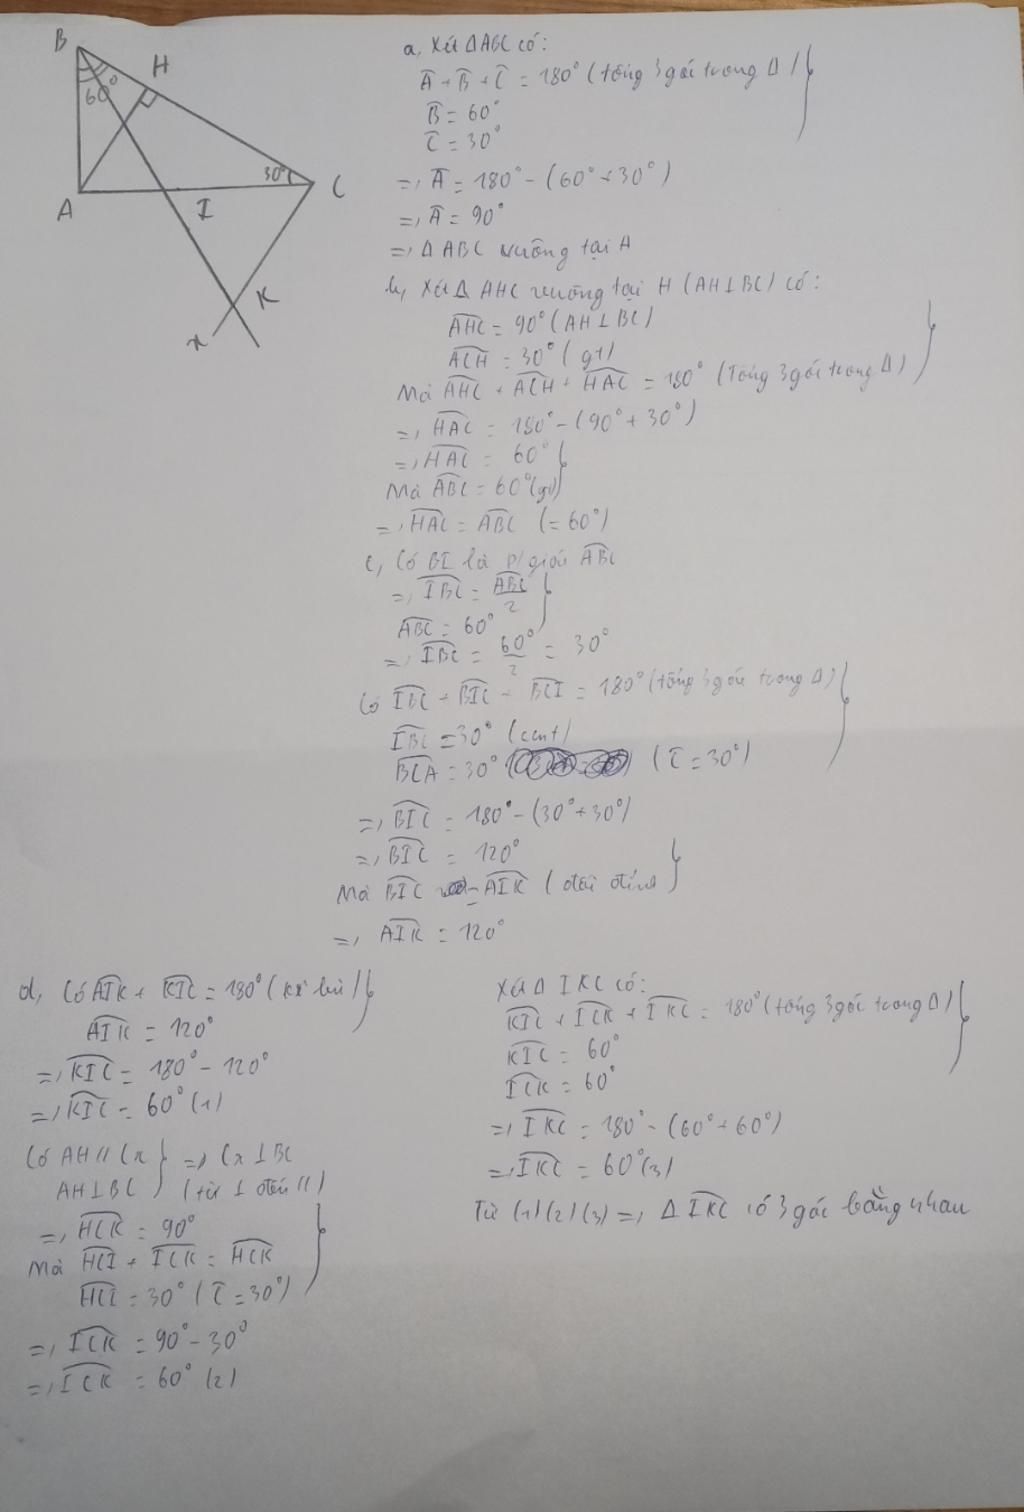 B
H
60°
30°
A
I
C
K
x
a, Xét ΔABC có:
Â + B̂ + Ĉ = 180° (tổng 3 góc trong Δ)
B̂ = 60°
Ĉ = 30°
=> Â = 180° - (60° + 30°)
=> Â = 90°
=> ΔABC vuông tại A
b, Xét Δ AHC vuông tại H (AH⊥BC) có:
AHC = 90° (AH⊥BC)
ACH = 30° (gt)
Mà AHC + ACH + HAC = 180° (Tổng 3 góc trong Δ)
=> HAC = 180° - (90° + 30°)
=> HAC = 60°
Mà ABC = 60° (gt)
=> HAC = ABC (= 60°)
c, Có BI là p/giác ABC
=> IBC = ABC/2
ABC = 60°
=> IBC = 60°/2 = 30°
Có IBC + BIC + BCI = 180° (tổng 3 góc trong Δ)
IBC = 30° (cmt)
BCA = 30° (Ĉ = 30°)
=> BIC = 180° - (30° + 30°)
=> BIC = 120°
Mà BIC = AIK (đối đỉnh)
=> AIK = 120°
d, Có AIK + KIC = 180° (kề bù)
AIK = 120°
=> KIC = 180° - 120°
=> KIC = 60° (1)
Có AH // Cx => Cx ⊥ BC
AH ⊥ BC (từ ⊥ đến //)
=> HCK = 90°
Mà HCI + ICK = HCK
HCI = 30° (Ĉ = 30°)
=> ICK = 90° - 30°
=> ICK = 60° (2)
Xét Δ IKC có:
KIC + ICK + IKC = 180° (tổng 3 góc trong Δ)
KIC = 60°
ICK = 60°
=> IKC = 180° - (60° + 60°)
=> IKC = 60° (3)
Từ (1) (2) (3) => Δ IKC có 3 góc bằng nhau